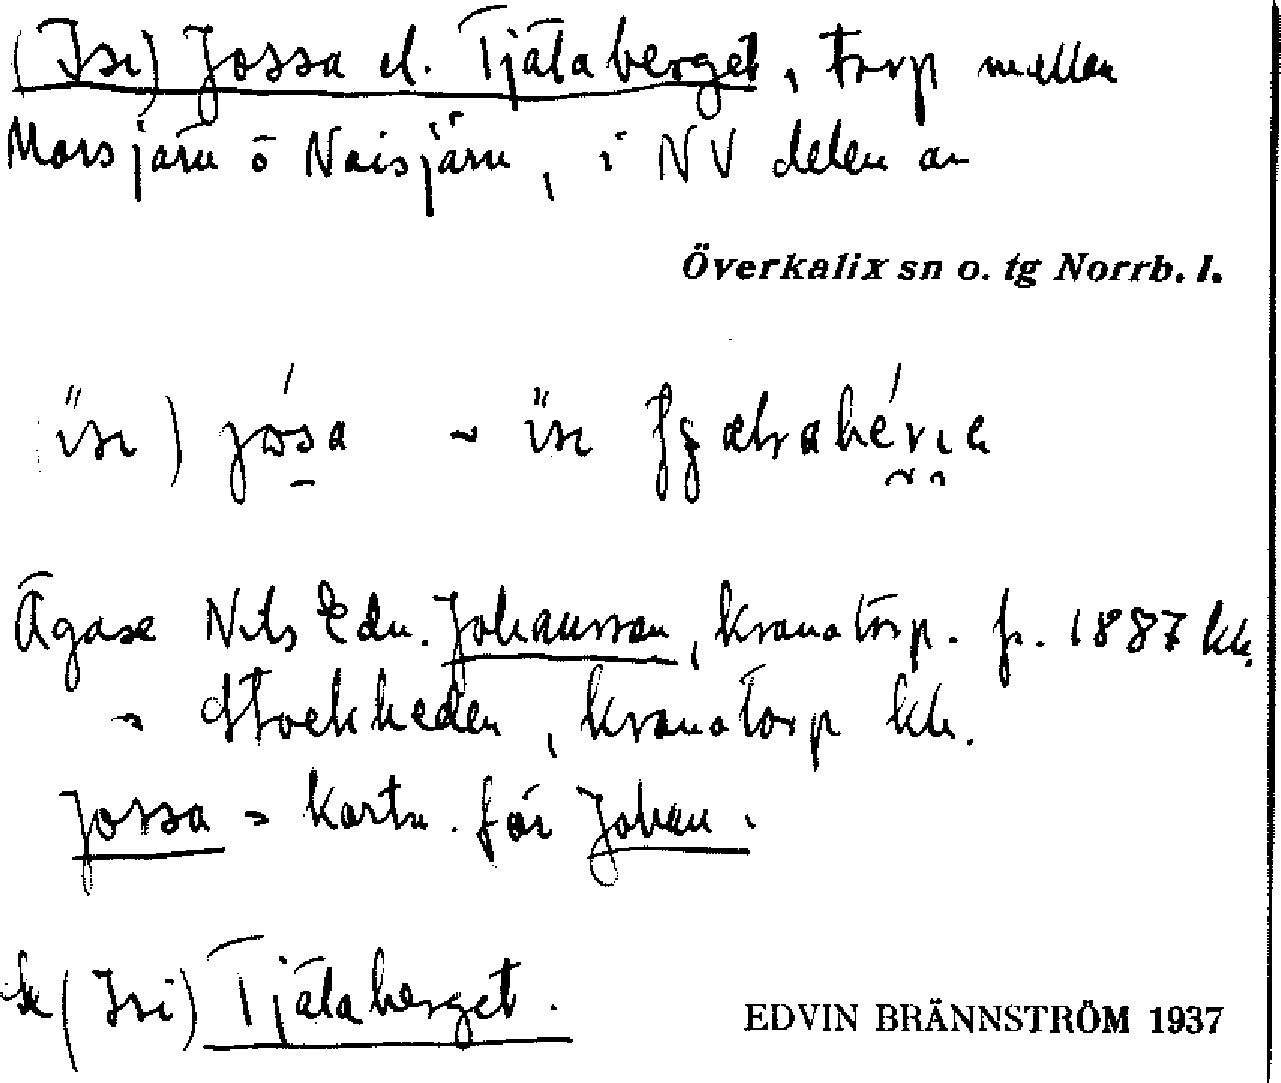 (Isi) Jossa el. Tjälaberget, torp mellan
Morsjärv o Naisjärv, i NV delen av
Överkalix sn o. tg Norrb. l.
Ägare Nils Edv. Johansson, kronotorp. f. 1887 kh.
~ Stockheden, kronotorp kh.
Jossa = kortn. för Johan.
Se (Isi) Tjälaberget.
EDVIN BRÄNNSTRÖM 1937